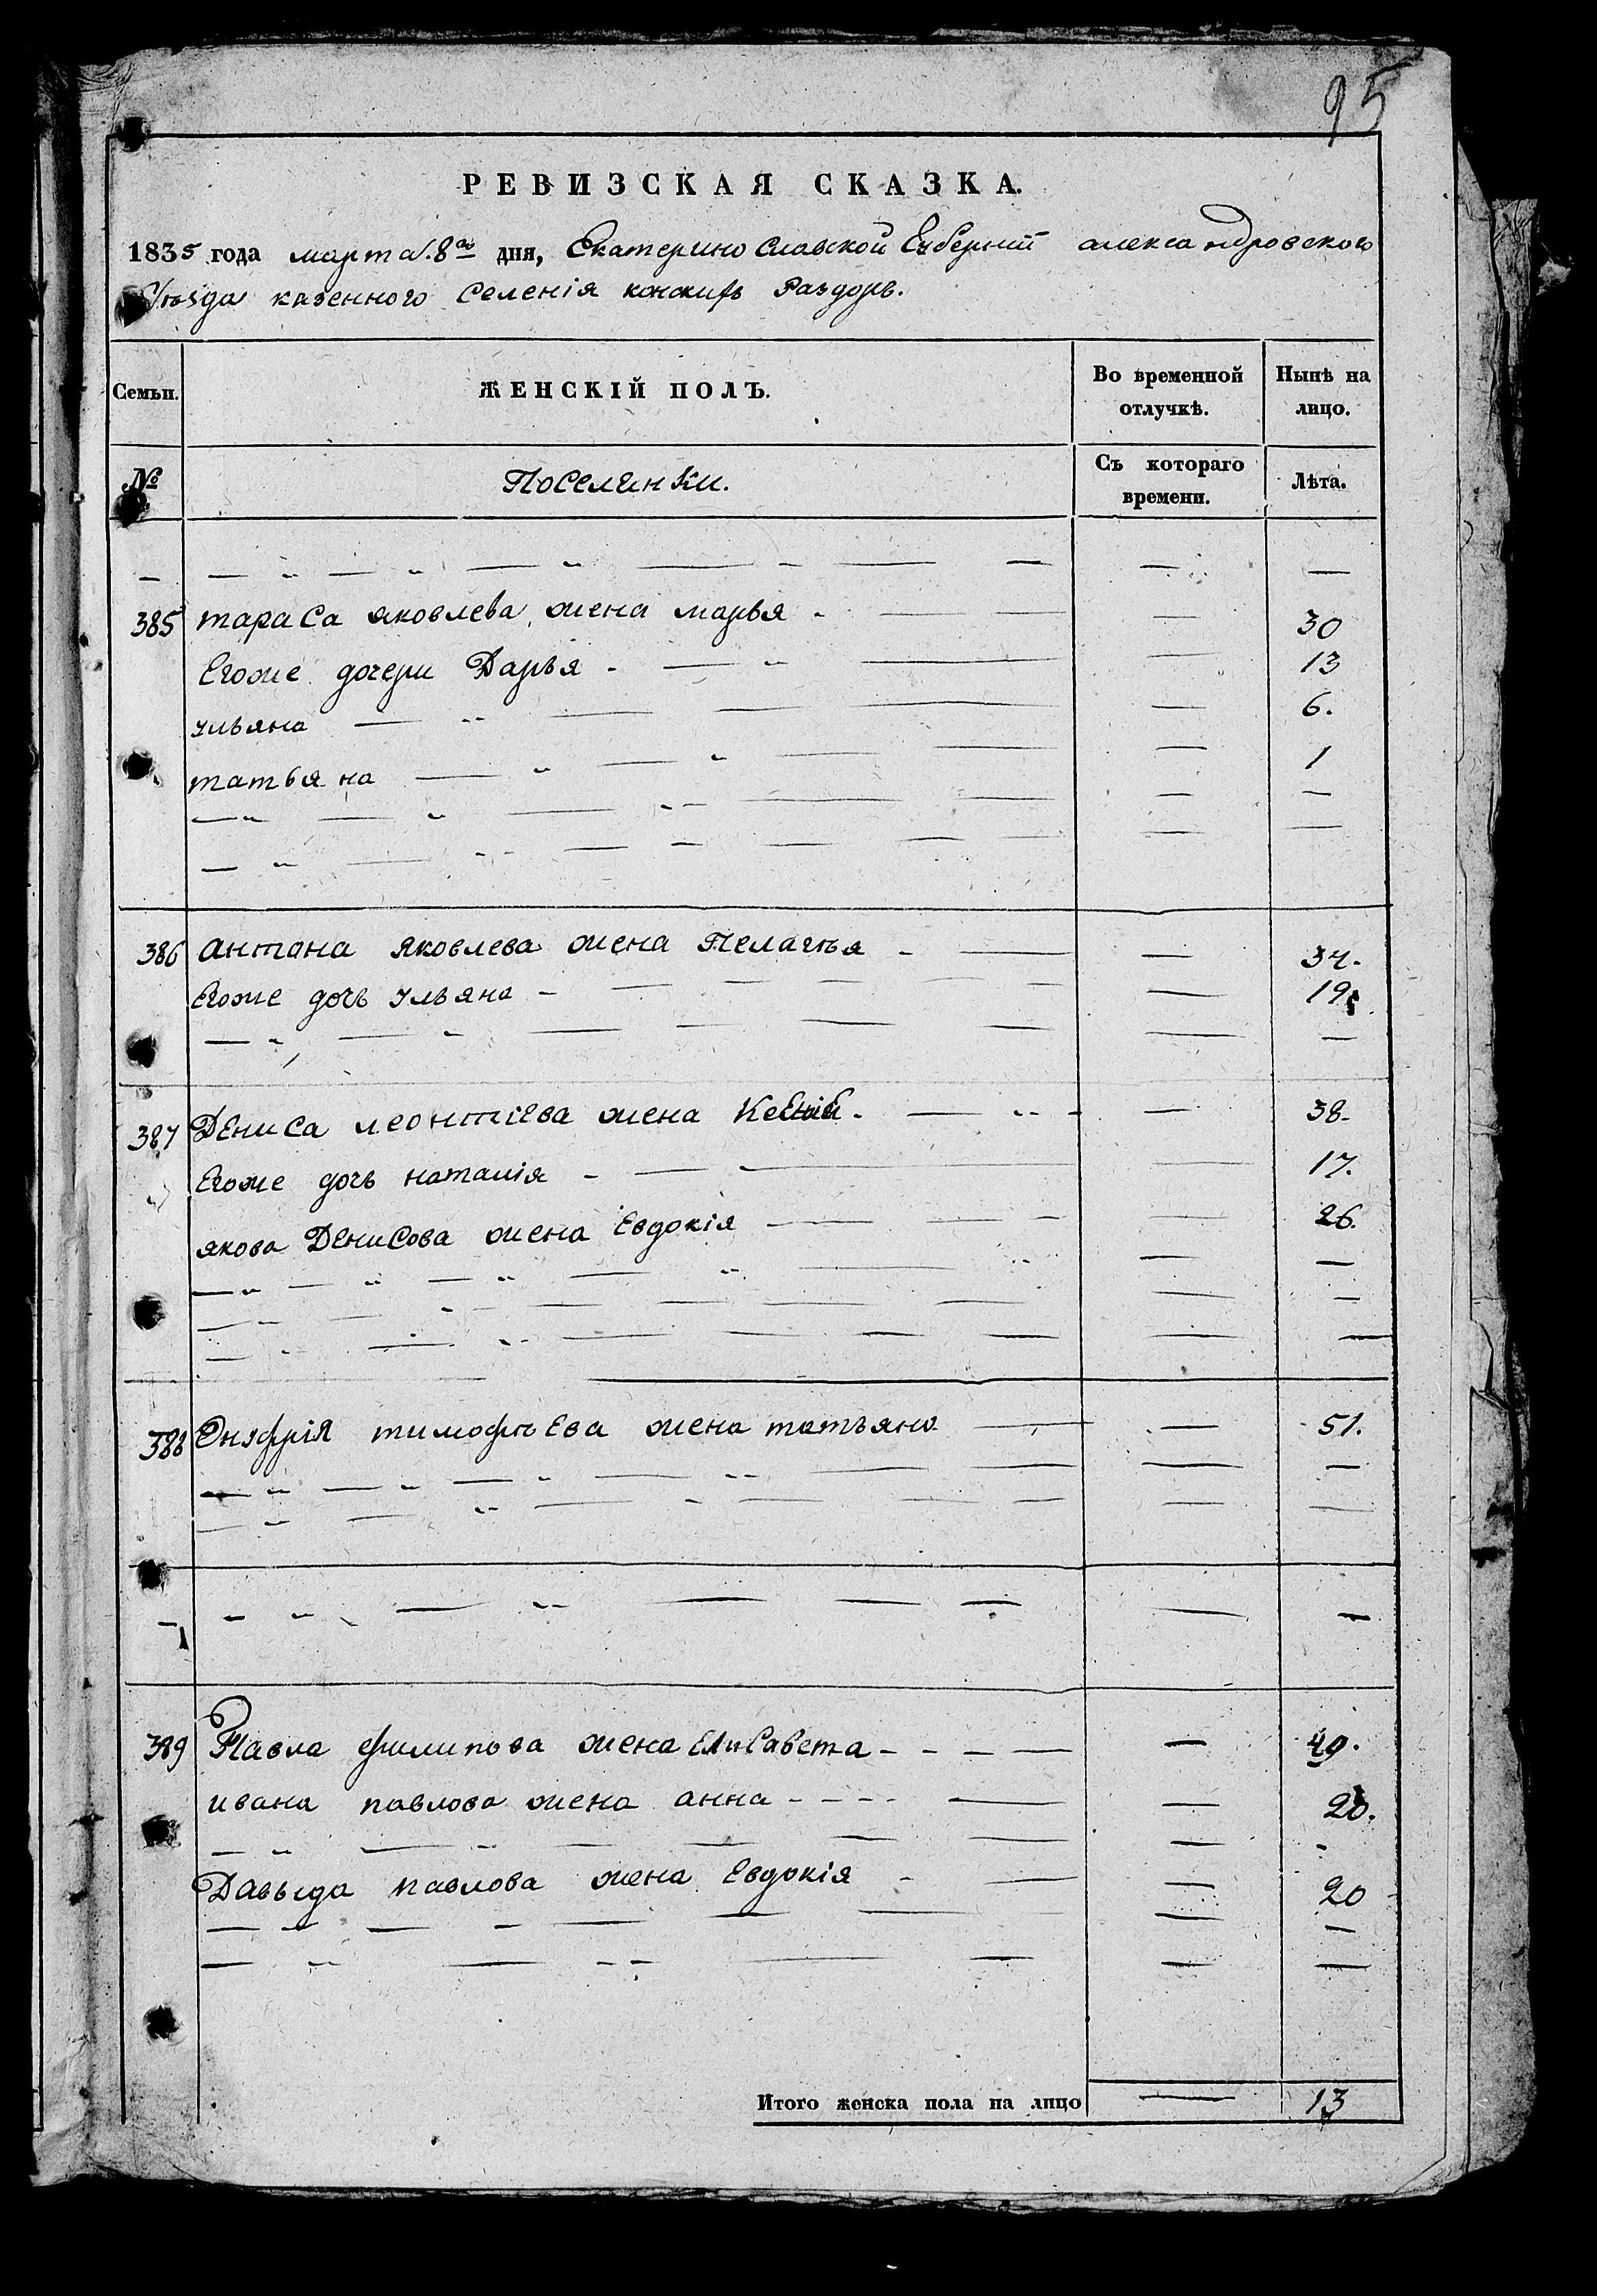 95
РЕВИЗСКАЯ СКАЗКА.
1835 года марта 8го дня, Екатеринославской Губерніи александровского
Уѣзда казенного Селенія Раздоръ.
Семьи. ЖЕНСКІЙ ПОЛЪ. Во временной отлучкѣ. Нынѣ на лицо.
№ Поселянки. Съ котораго времени. Лѣта.
385 тараса яковлева жена марья 30
Егоже дочери Дарья 13
ульяна 6.
татьяна 1
386 антона яковлева жена Пелагѣя 34.
Егоже дочь ульяна 19
387 Дениса леонтіева жена 38.
Егоже дочь наталія 17.
якова Денисова жена Евдокія 26.
388 Онуфрія тимофѣева жена татьяна 51.
389 Павла филипова жена Елисавета 49.
ивана павлова жена анна 20.
Давыда павлова жена Евдокія 20
Итого женска пола на лицо 13